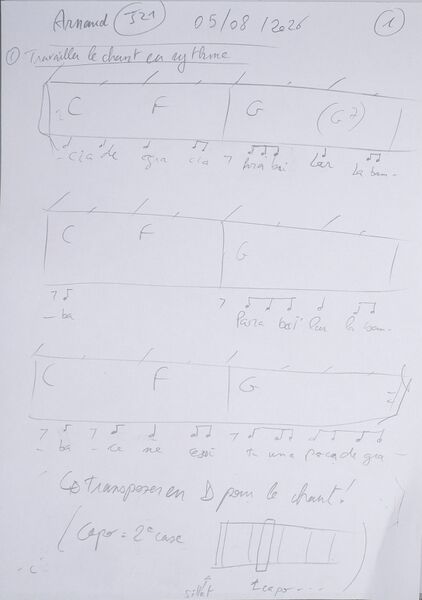 Arnaud J21 05/08/2026 1
① Travailler le chant en rythme
C F G (G7)
- cia de gra cia para bai lar la bam-
C F G
- ba Para bai lar la bam-
C F G
- ba - ce ne una poca de gra -
↳ transposer en D pour le chant!
(Capo = 2e case
sillet capo